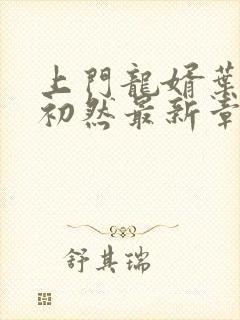 上門龍婿葉
初然最新章
舒其瑞